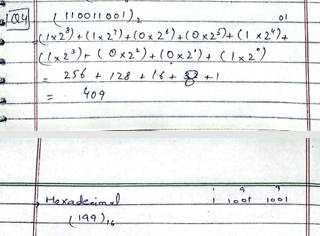 Q4 (110011001)₂ 01
=(1×2⁸)+(1×2⁷)+(0×2⁶)+(0×2⁵)+(1×2⁴)+
(1×2³)+(0×2²)+(0×2¹)+(1×2⁰)
= 256 + 128 + 16 + 8 + 1
= 409
1 9 9
Hexadecimal 1 1001 1001
(199)₁₆